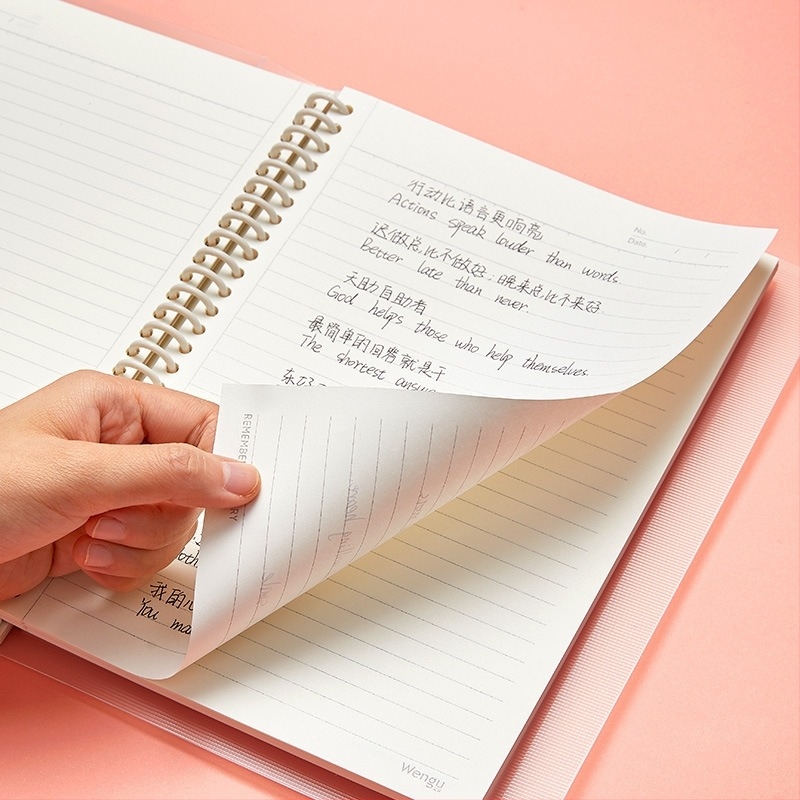 No.
Date. / /
行动比语言更响亮
Actions speak louder than words.
迟做总比不做好；晚来总比不来好.
Better late than never.
天助自助者
God helps those who help themselves.
最简单的回答就是干
The shortest answe
东好
REMEMBE
RY
我的
You ma
Wengu